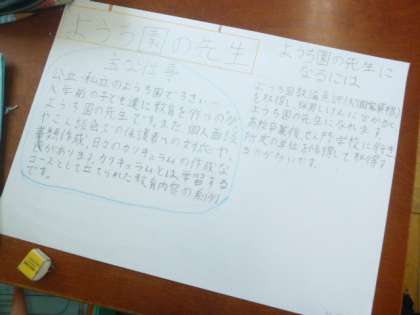 ようち園の先生
主な仕事
公立・私立のようち園で3さい〜
入学前の子ども達に教育を行うのが
ようち園の先生です。また、個人面談
やこん談会での保護者への対応や、
書類作成、日々のカリキュラムの作成な
どがあります。カリキュラムとは、学習する
コースとして立てられた教育内容の系列
です。
ようち園の先生に
なるには
ようち園教諭免許状(国家資格)
を取得し、採用しけんに合かくして
ようち園の先生になれます。
高校卒業後、専門学校に行き
所定の単位を修得して取得する